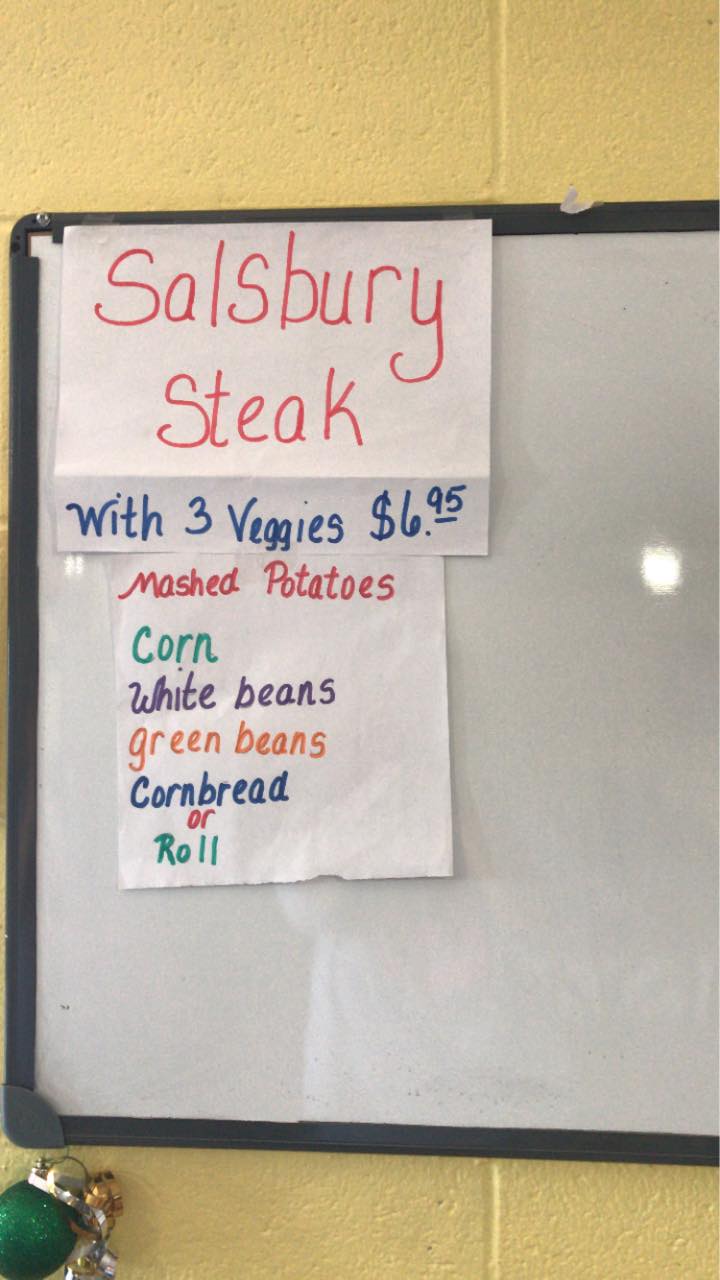 Salsbury
Steak
With 3 Veggies $6.95
Mashed Potatoes
Corn
White beans
green beans
Cornbread
or
Roll